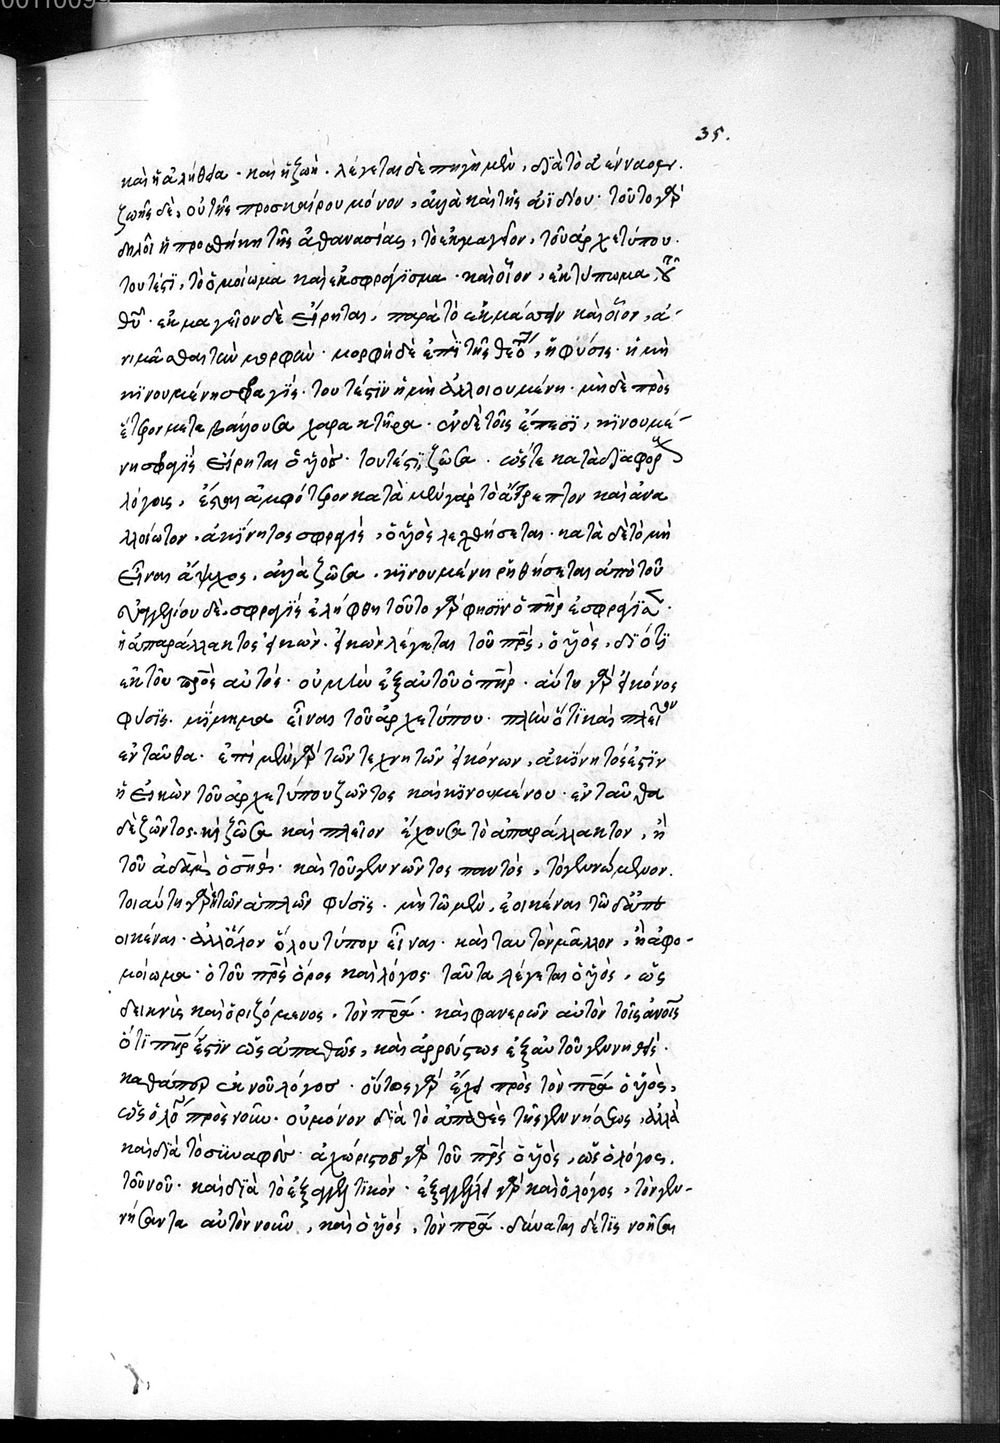 35.
καὶ ἡ ἀλήθεια · καὶ ἡ ζωή · λέγεται δὲ πηγὴ μὲν, διὰ τὸ ἀένναον.
ζωῆς δὲ, οὐ τῆς προσκαίρου μόνον, ἀλλὰ καὶ τῆς ἀϊδίου · τοῦτο γὰρ
δηλοῖ ἡ προσθήκη τῆς ἀθανασίας, τὸ ἐκμαγεῖον, τοῦ ἀρχετύπου.
τουτέστι, τὸ ὁμοίωμα καὶ ἐκσφράγισμα · καὶ οἷον, ἐκτύπωμα τοῦ
θυ · ἐκμαγεῖον δὲ εἴρηται, παρὰ τὸ ἐκμάσσειν καὶ οἷον, ἀ-
νιμᾶσθαι τὴν μορφὴν · μορφὴ δὲ ἐπὶ τῆς θεό, ἡ φύσις · ἡ μὴ
κινουμένη σφραγὶς · τουτέστιν ἡ μὴ ἀλλοιουμένη · μὴ δὲ πρὸς
ἕτερον μεταβάλλουσα χαρακτῆρα · ἐν δὲ τοῖς ἔπεσι, κινουμέ-
νη σφραγὶς εἴρηται ὁ υἱὸς · τουτέστι, ζῶσα · ὥστε κατὰ διαφόρους
λόγους, ἔστιν ἀμφότερον κατὰ μὲν γὰρ τὸ ἄτρεπτον καὶ ἀνα
λλοίωτον, ἀκίνητος σφραγὶς, ὁ υἱὸς λεχθήσεται · κατὰ δὲ τὸ μὴ
εἶναι ἄψυχος, ἀλλὰ ζῶσα, κινουμένη ῥηθήσεται ἀπὸ τοῦ
εὐαγγελίου δὲ, σφραγὶς ἐλήφθη τοῦτο γὰρ φησὶν ὁ πηρ ἐσφράγισεν ·
ἡ ἀπαράλλακτος εἰκών · εἰκὼν λέγεται τοῦ πρς, ὁ υἱὸς, διότι
ἐκ τοῦ πρς αὐτός · οὐ μὴν ἐξ αὐτοῦ ὁ πηρ · αὕτη γὰρ εἰκόνος
φύσις · μίμημα εἶναι τοῦ ἀρχετύπου · πλὴν ὅτι καὶ πλεῖον
ἐνταῦθα · ἐπὶ μὲν γὰρ τῶν τεχνητῶν εἰκόνων, ἀκίνητός ἐστιν
ἡ εἰκὼν τοῦ ἀρχετύπου ζῶντος καὶ κινουμένου · ἐνταῦθα
δὲ ζῶντος καὶ ζῶσα καὶ πλεῖον ἔχουσα τὸ ἀπαράλλακτον, ἢ
τοῦ ἀδὰμ ὁ σὴθ · καὶ τοῦ γεννῶντος παντὸς, τὸ γεννώμενον.
τοιαύτη γὰρ ἡ τῶν ἁπλῶν φύσις · μὴ τῷ μὲν, ἐοικέναι τῷ δὲ ἀπε
οικέναι · ἀλλ' ὅλον ὅλου τύπον εἶναι · καὶ ταυτὸν μᾶλλον, ἢ ἀφο-
μοίωμα · ὁ τοῦ πρς ὅρος καὶ λόγος · ταῦτα λέγεται ὁ υἱὸς, ὡς
δεικνὺς καὶ ὁριζόμενος, τὸν πρα · καὶ φανερῶν αὐτὸν τοῖς ἀνοις
ὅτι πηρ ἐστὶν ὡς ἀπαθῶς, καὶ ἀρρεύστως ἐξ αὐτοῦ γεννηθεὶς ·
καθάπερ ἐκ νοῦ λόγος · οὕτως γὰρ ἔχει πρὸς τὸν πρα ὁ υἱὸς,
ὡς ὁ λόγος πρὸς νοῦν · οὐ μόνον διὰ τὸ ἀπαθὲς τῆς γεννήσεως, ἀλλὰ
καὶ διὰ τὸ συναφὲς · ἀχώριστος γὰρ τοῦ πρς ὁ υἱὸς, ὡς ὁ λόγος,
τοῦ νοῦ · καὶ διὰ τὸ ἐξαγγελτικόν · ἐξαγγέλλει γὰρ καὶ ὁ λόγος, τὸν γεν-
νήσαντα αὐτὸν νοῦν, καὶ ὁ υἱὸς, τὸν πρα · δύναται δέ τις νοῆσαι